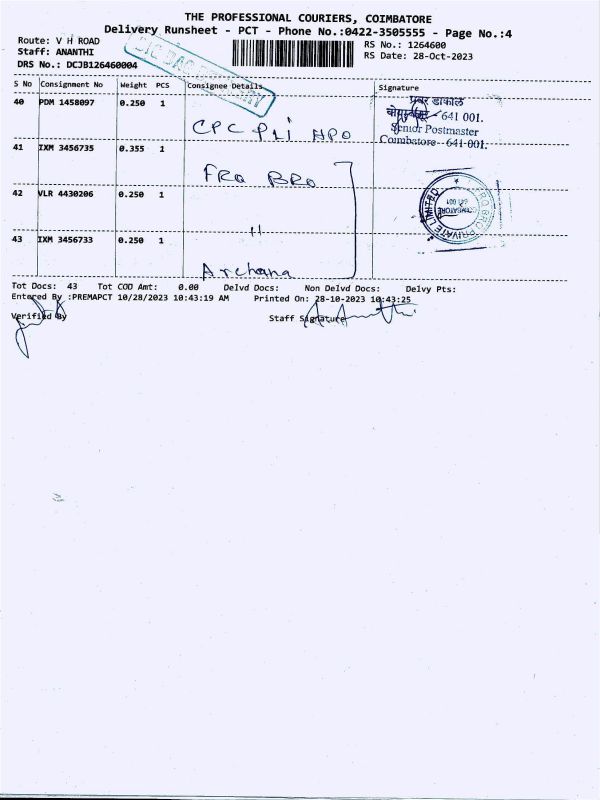 THE PROFESSIONAL COURIERS, COIMBATORE
Delivery Runsheet - PCT - Phone No.:0422-3505555 - Page No.:4
Route: V H ROAD
RS No.: 1264600
Staff: ANANTHI
RS Date: 28-Oct-2023
DRS No.: DCJB126460004
S No Consignment No Weight PCS Consignee Details Signature
40 PDM 1458097 0.250 1
CPC PLI HPO
प्रवर डाकपाल
641 001.
Senior Postmaster
Coimbatore - 641 001.
41 IXM 3456735 0.355 1
FRO BRO
42 VLR 4430206 0.250 1
"
FRO BRO PRIVATE LIMITED
COIMBATORE
641 001
43 IXM 3456733 0.250 1
Archana
Tot Docs: 43 Tot COD Amt: 0.00 Delvd Docs: Non Delvd Docs: Delvy Pts:
Entered By :PREMAPCT 10/28/2023 10:43:19 AM Printed On: 28-10-2023 10:43:25
Verified By
Staff Signature